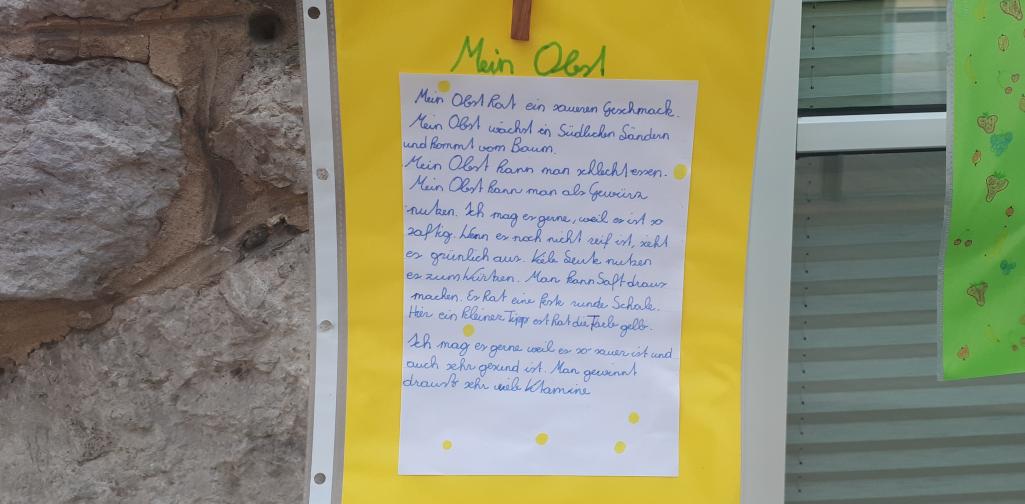 Mein Obst
Mein Obst hat ein saueren Geschmack.
Mein Obst wächst in Südlichen Ländern
und kommt vom Baum.
Mein Obst kann man schlecht essen.
Mein Obst kann man als Gewürz
nutzen. Ich mag es gerne, weil es ist so
saftig. Wenn es noch nicht reif ist, seht
es grünlich aus. Viele Leute nutzen
es zum Würtzen. Man kann Saft draus
machen. Es hat eine feste runde Schale.
Hir ein kleiner Tipp est hat die Farbe gelb.
Ich mag es gerne weil es so sauer ist und
auch sehr gesund ist. Man gewinnt
sehr viele Vitamine